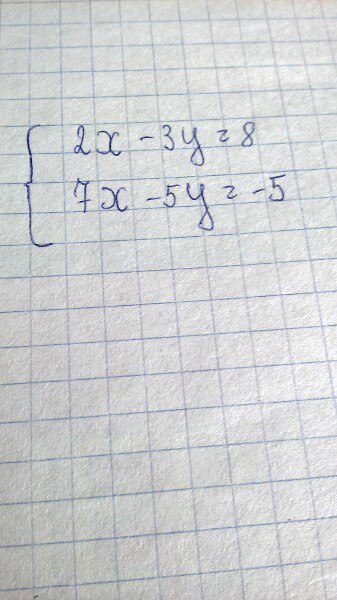 2x - 3y = 8
7x - 5y = -5